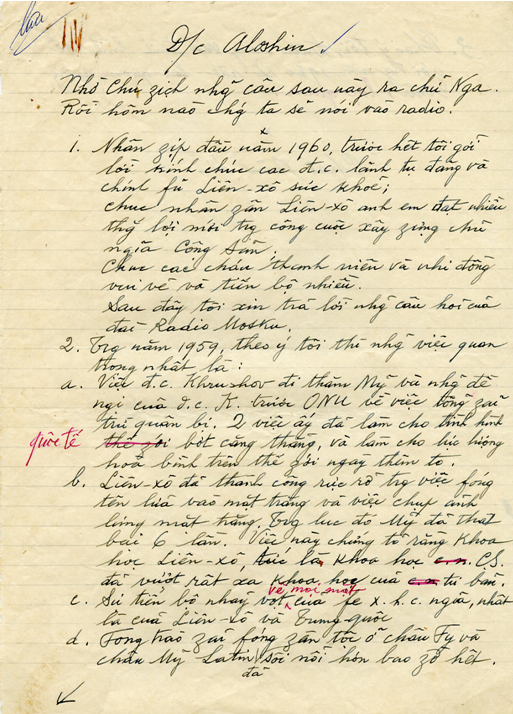 Đ/c Aloshin
Nhờ Chú zịch nhg̃ câu sau này ra chữ Nga.
Rồi hôm nào chǵ ta sẽ nói vào radio.
1. Nhân zịp đầu năm 1960, trước hết tôi gởi
lời kính chúc các đ.c. lãnh tụ đảng và
chính fủ Liên-xô sức khoẻ;
chúc nhân zân Liên-xô anh em đạt nhiều
thg̃ lợi mới trg công cuộc xây zựng chủ
ngĩa Cộng sản.
Chúc các cháu thanh niên và nhi đồng
vui vẻ và tiến bộ nhiều.
Sau đây tôi xin trả lời nhg̃ câu hỏi của
đài Radio Mosku.
2. Trg năm 1959, theo ý tôi thì nhg̃ việc quan
trọng nhất là:
a. Việc đ.c. Khrushov đi thăm Mỹ và nhg̃ đề
ngị của đ.c. K. trước ONU về việc tổng zải
trừ quân bị. 2 việc ấy đã làm cho tình hình
quốc tế thế zới bớt căng thẳng, và làm cho lực lượng
hoà bình trên thế zới ngày thêm to.
b. Liên-xô đã thành công rực rỡ trg việc fóng
tên lửa vào mặt trăng và việc chụp ảnh
lưng mặt trăng. Trg lúc đó Mỹ đã thất
bại 6 lần. Việc này chứng tỏ rằng Khoa
học Liên-xô, tức là Khoa học c.n. C.S.
đã vượt rất xa Khoa học của tư bản.
về mọi mặt
c. Sự tiến bộ nhảy vọt của fe x.h.c. ngĩa, nhất
là của Liên-xô và Trung-quốc
d. Fong trào zải fóng zân tộc ở châu Fy và
châu Mỹ Latin sôi nổi hơn bao zờ hết.
đã